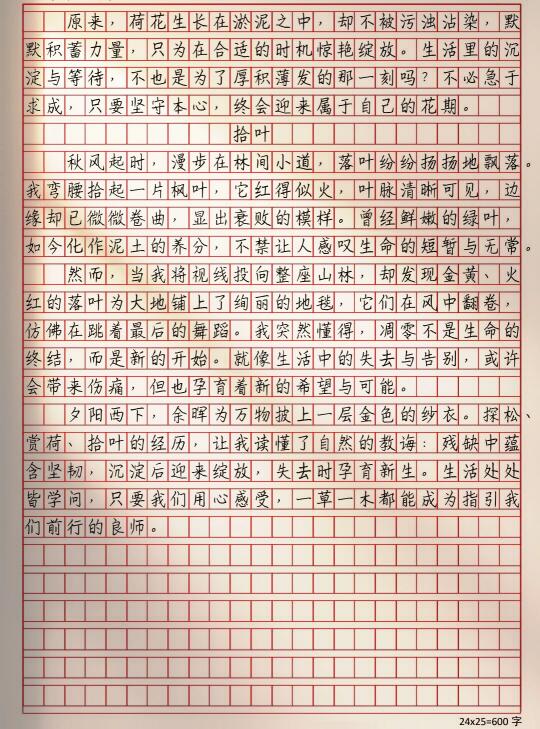 原来，荷花生长在淤泥之中，却不被污浊沾染，默
默积蓄力量，只为在合适的时机惊艳绽放。生活里的沉
淀与等待，不也是为了厚积薄发的那一刻吗？不必急于
求成，只要坚守本心，终会迎来属于自己的花期。
拾叶
秋风起时，漫步在林间小道，落叶纷纷扬扬地飘落。
我弯腰拾起一片枫叶，它红得似火，叶脉清晰可见，边
缘却已微微卷曲，显出衰败的模样。曾经鲜嫩的绿叶，
如今化作泥土的养分，不禁让人感叹生命的短暂与无常。
然而，当我将视线投向整座山林，却发现金黄、火
红的落叶为大地铺上了绚丽的地毯，它们在风中翻卷，
仿佛在跳着最后的舞蹈。我突然懂得，凋零不是生命的
终结，而是新的开始。就像生活中的失去与告别，或许
会带来伤痛，但也孕育着新的希望与可能。
夕阳西下，余晖为万物披上一层金色的纱衣。探松、
赏荷、拾叶的经历，让我读懂了自然的教诲：残缺中蕴
含坚韧，沉淀后迎来绽放，失去时孕育新生。生活处处
皆学问，只要我们用心感受，一草一木都能成为指引我
们前行的良师。
24x25=600 字